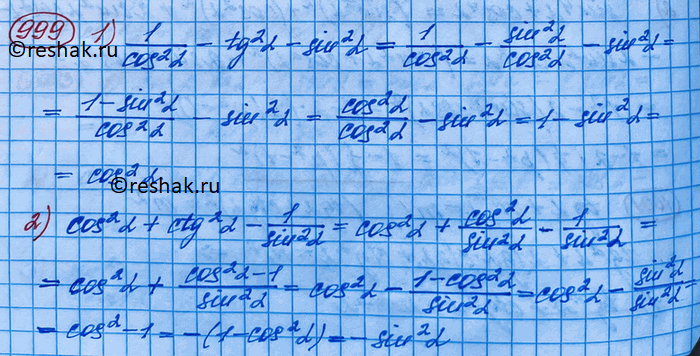 999 1) 1/cos²α - tg²α - sin²α = 1/cos²α - sin²α/cos²α - sin²α =
©reshak.ru
= (1-sin²α)/cos²α - sin²α = cos²α/cos²α - sin²α = 1 - sin²α =
= cos²α
©reshak.ru
2) cos²α + ctg²α - 1/sin²α = cos²α + cos²α/sin²α - 1/sin²α =
= cos²α + (cos²α-1)/sin²α = cos²α - (1-cos²α)/sin²α = cos²α - sin²α/sin²α =
= cos² - 1 = -(1-cos²α) = -sin²α